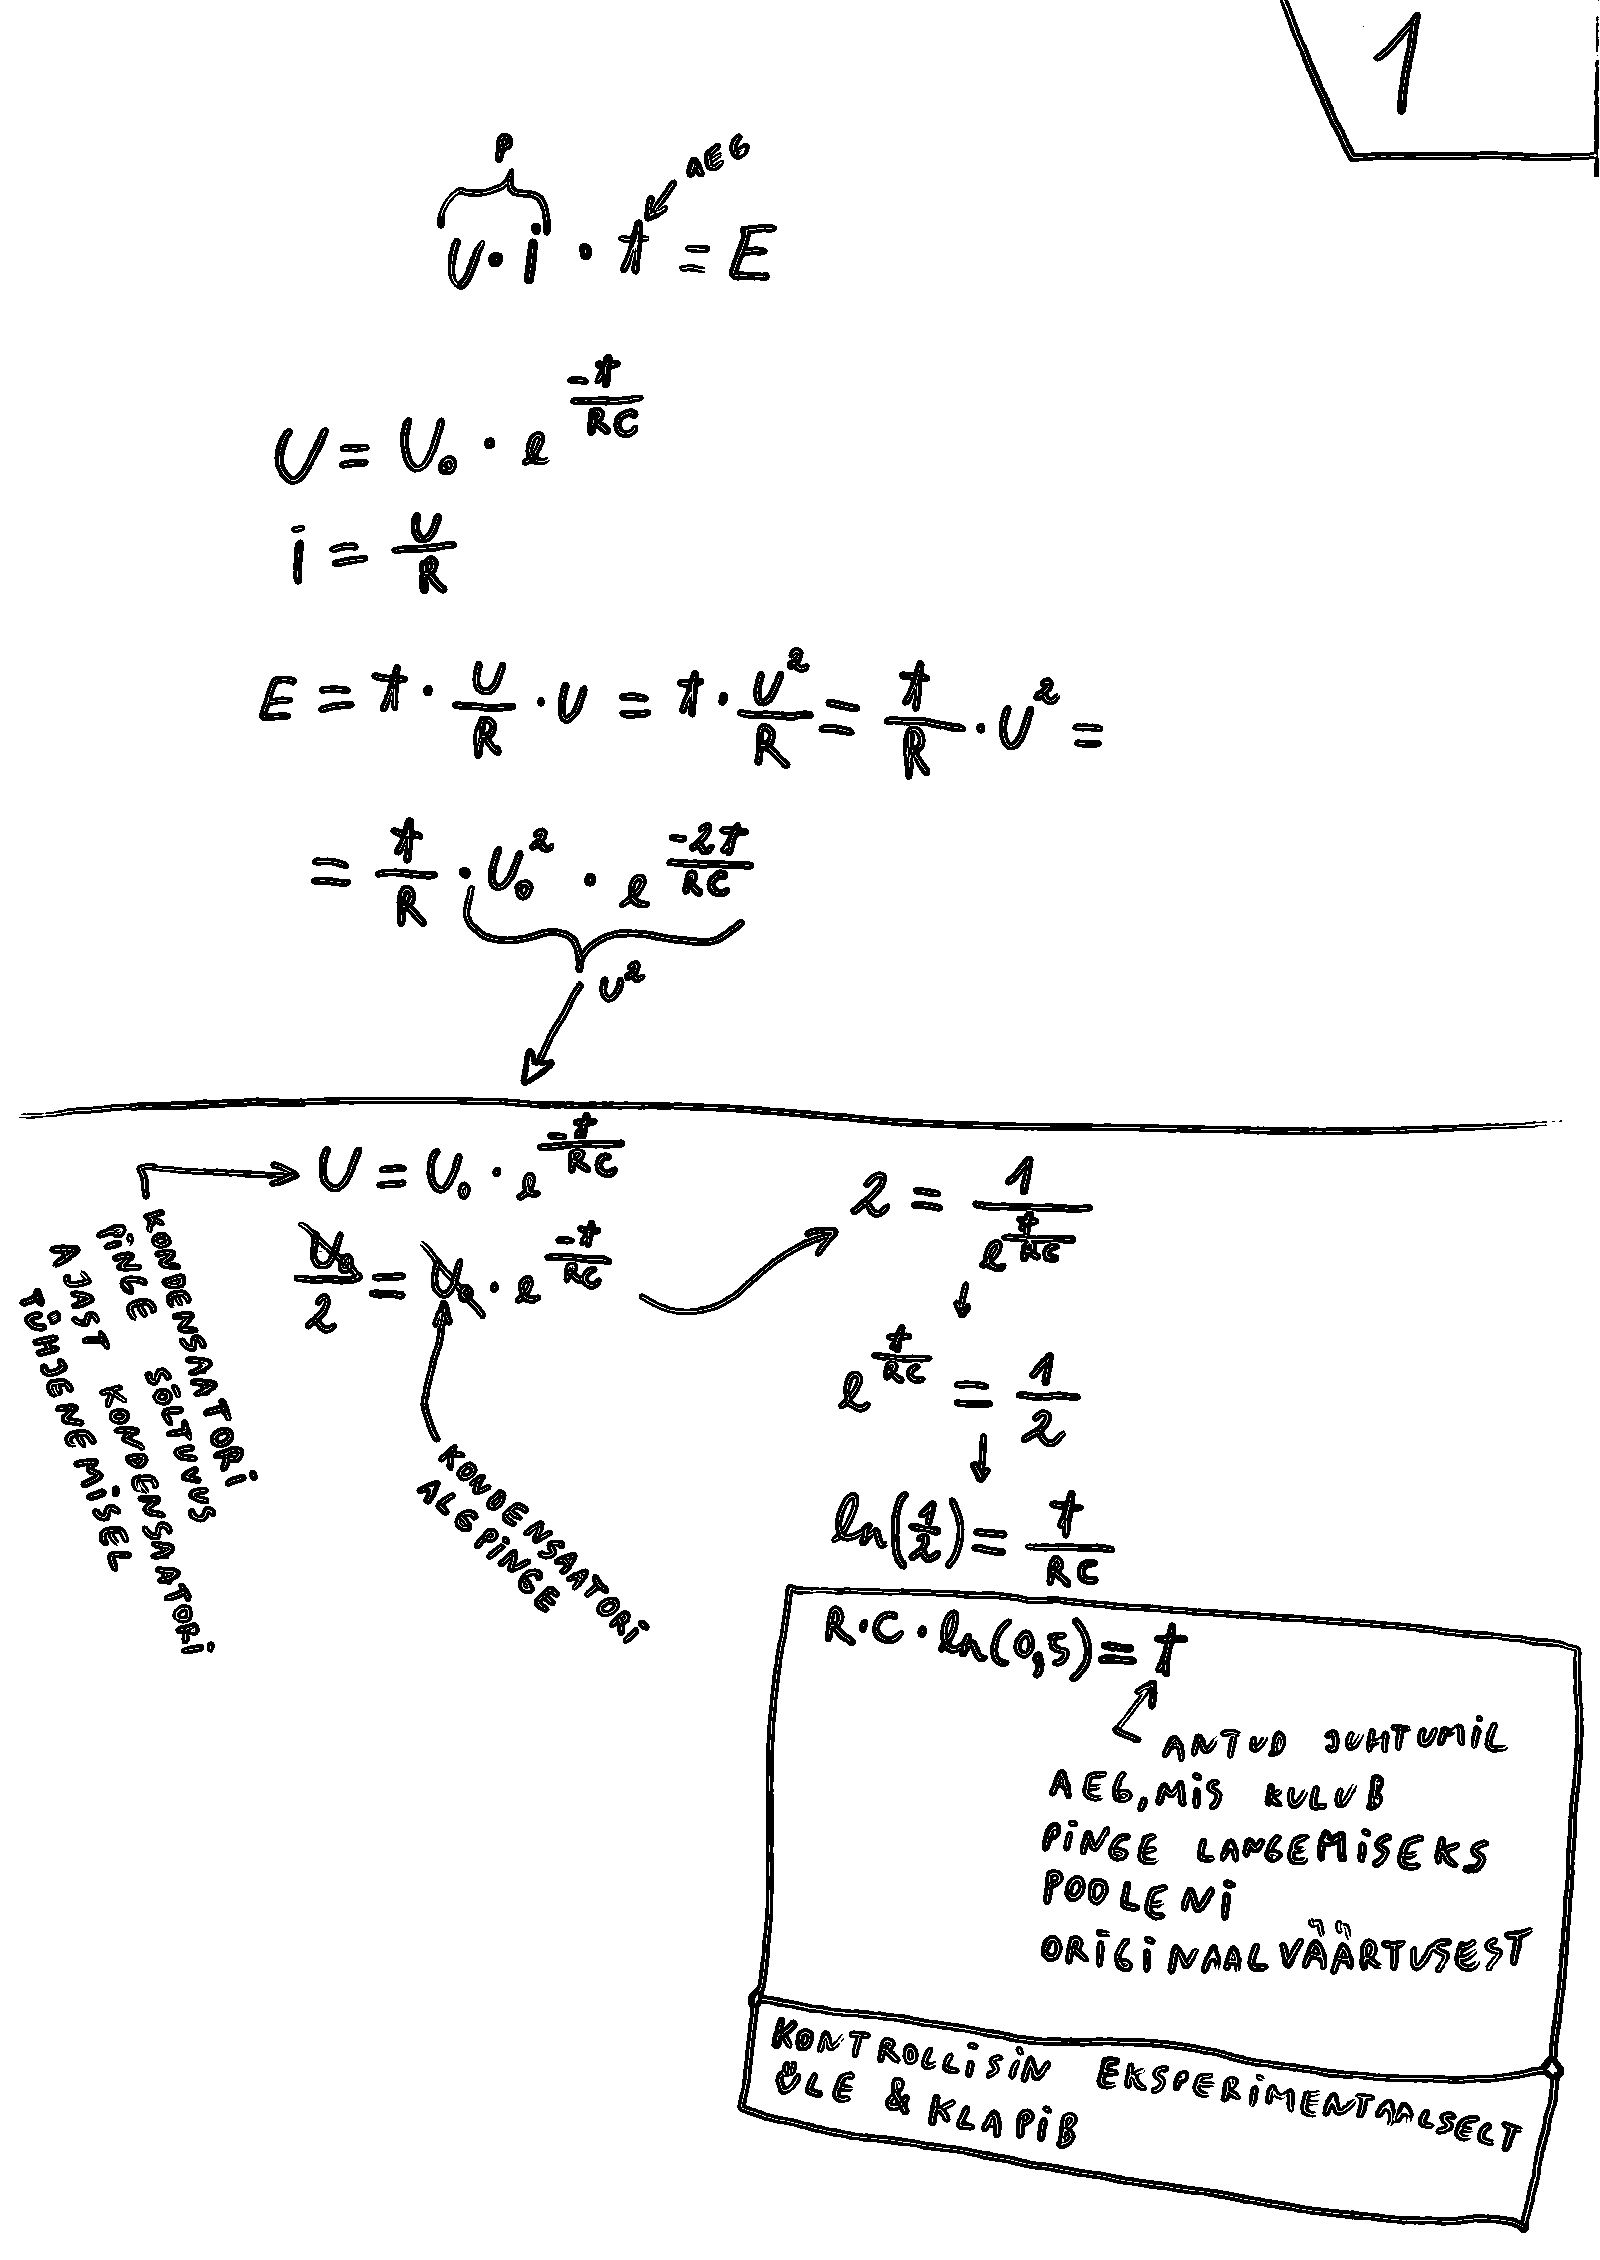 1
P
AEG
U · i · t = E
U = U₀ · e^(-t/RC)
i = U/R
E = t · U/R · U = t · U²/R = t/R · U² =
= t/R · U₀² · e^(-2t/RC)
U²
U = U₀ · e^(-t/RC)
U₀/2 = U₀ · e^(-t/RC)
KONDENSAATORI
PINGE SÕLTUVUS
AJAST KONDENSAATORI
TÜHJENEMISEL
KONDENSAATORI
ALGPINGE
2 = 1/e^(t/RC)
e^(t/RC) = 1/2
ln(1/2) = t/RC
R·C·ln(0,5) = t
ANTUD JUHTUMIL
AEG, MIS KULUB
PINGE LANGEMISEKS
POOLENI
ORIGINAALVÄÄRTUSEST
KONTROLLISIN EKSPERIMENTAALSELT
ÜLE & KLAPIB